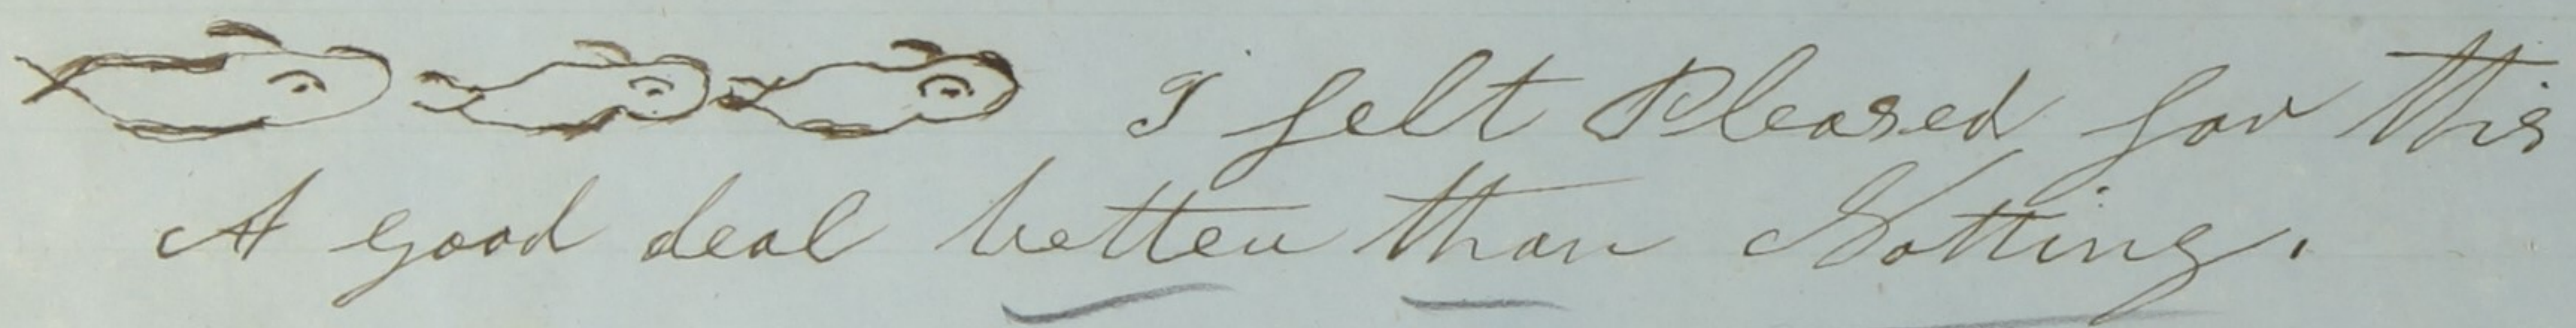 I felt Pleased for this
A good deal better than Notting.